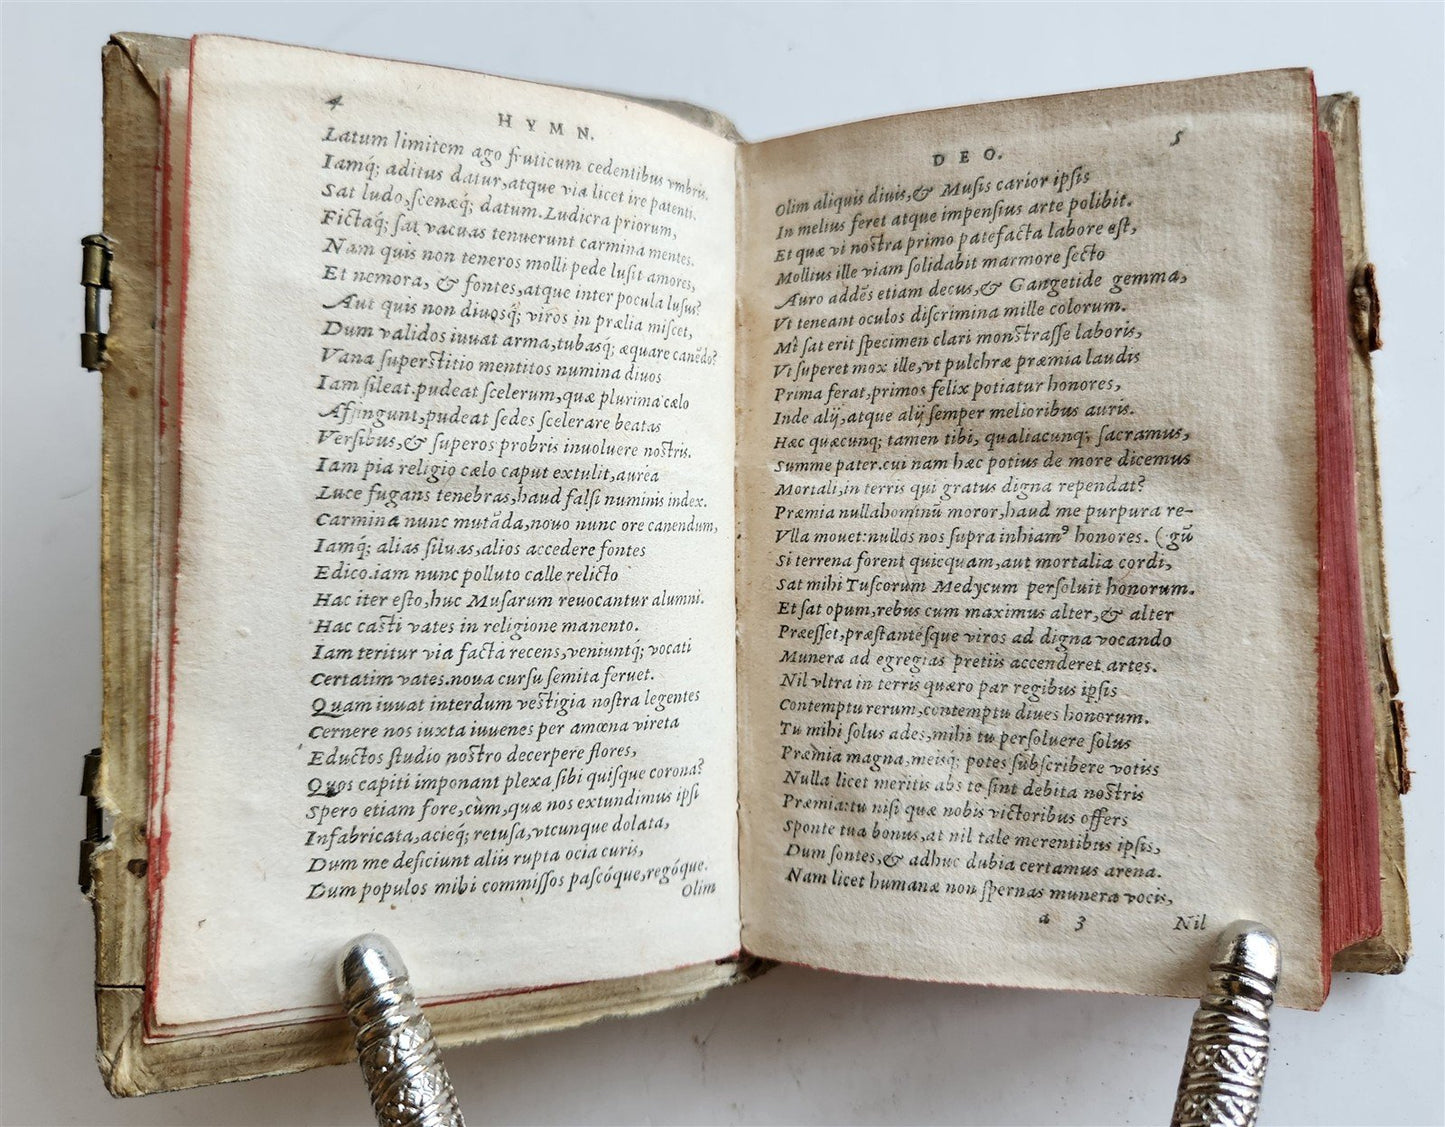 4
HYMN.
Latum limitem ago fruticum cedentibus vmbris.
Iamq́; aditus datur,atque viæ licet ire patenti.
Sat ludo,ſcenæq́; datum.Ludicra priorum,
Fictaq́; ſat vacuas tenuerunt carmina mentes.
Nam quis non teneros molli pede luſit amores,
Et nemora, & fontes,atque inter pocula luſus?
Aut quis non diuosq́; viros in prælia miſcet,
Dum validos iuuat arma,tubasq́; æquare canẽdo?
Vana ſuperſtitio mentitos numina diuos
Iam ſileat.pudeat ſcelerum,quæ plurima cælo
Affingunt,pudeat ſedes ſcelerare beatas
Verſibus,& ſuperos probris inuoluere noſtris.
Iam pia religio cælo caput extulit,aurea
Luce fugans tenebras,haud falſi numinis index.
Carmina nunc mutãda,nouo nunc ore canendum,
Iamq́; alias ſiluas,alios accedere fontes
Edico.iam nunc polluto calle relicto
Hac iter eſto,huc Muſarum reuocantur alumni.
Hac caſti vates in religione manento.
Iam teritur via facta recens,veniuntq́; vocati
Certatim vates.noua curſu ſemita feruet.
Quam iuuat interdum veſtigia noſtra legentes
Cernere nos iuxta iuuenes per amœna vireta
Eductos ſtudio noſtro decerpere flores,
Quos capiti imponant plexa ſibi quiſque corona?
Spero etiam fore,cùm,quæ nos extundimus ipſi
Infabricata,acieq́; retuſa,vtcunque dolata,
Dum me deficiunt aliis rupta ocia curis,
Dum populos mihi commiſſos paſcóque,regóque.
Olim
5
DEO.
Olim aliquis diuis,& Muſis carior ipſis
In melius feret atque impenſius arte polibit.
Et quæ vi noſtra primo patefacta labore eſt,
Mollitus ille viam ſolidabit marmore ſecto
Auro addẽs etiam decus,& Gangetide gemma,
Vt teneant oculos diſcrimina mille colorum.
Mî ſat erit ſpecimen clari monſtraſſe laboris,
Vt ſuperet mox ille,vt pulchræ præmia laudis
Prima ferat,primos felix potiatur honores,
Inde alij,atque alij ſemper melioribus auris.
Hæc quæcunq; tamen tibi, qualiacunq; ſacramus,
Summe pater.cui nam hæc potius de more dicemus
Mortali,in terris qui gratus digna rependat?
Præmia nulla hominũ moror,haud me purpura re-
Vlla mouet:nullos nos ſupra inhiamꝰ honores. (gũ
Si terrena forent quicquam,aut mortalia cordi,
Sat mihi Tuſcorum Medycum perſoluit honorum.
Et ſat opum,rebus cum maximus alter,& alter
Præeſſet,præſtantéſque viros ad digna vocando
Munera ad egregias pretiis accenderet artes.
Nil vltra in terris quæro par regibus ipſis
Contemptu rerum,contemptu diues honorum.
Tu mihi ſolus ades,mihi tu perſoluere ſolus
Præmia magna,meisq́; potes ſubſcribere votis
Nulla licet meritis abs te ſint debita noſtris
Præmia:tu niſi quæ nobis victoribus offers
Sponte tua bonus,at nil tale merentibus ipſis,
Dum ſontes,& adhuc dubia certamus arena.
Nam licet humanæ non ſpernas munera vocis,
a 3
Nil